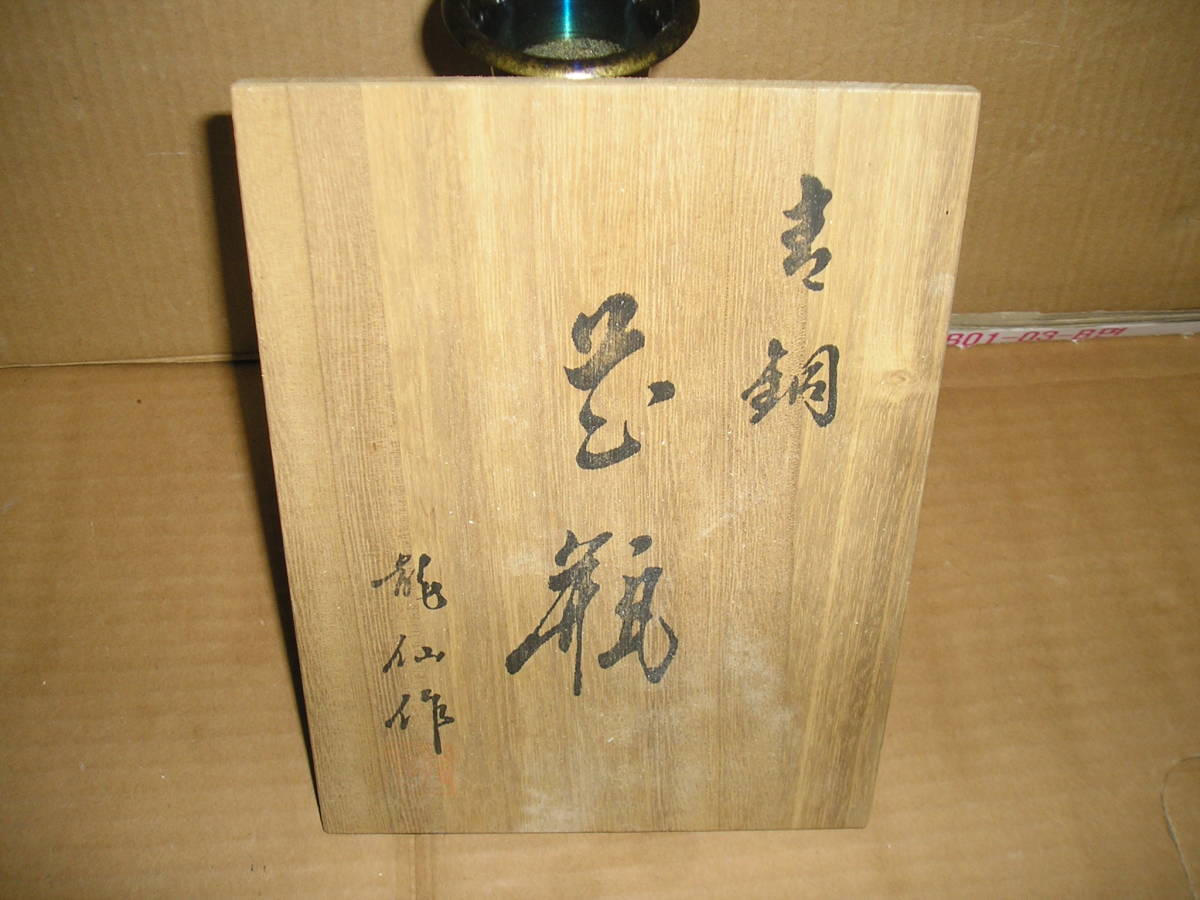 青銅
花瓶
龍仙作
B01-03